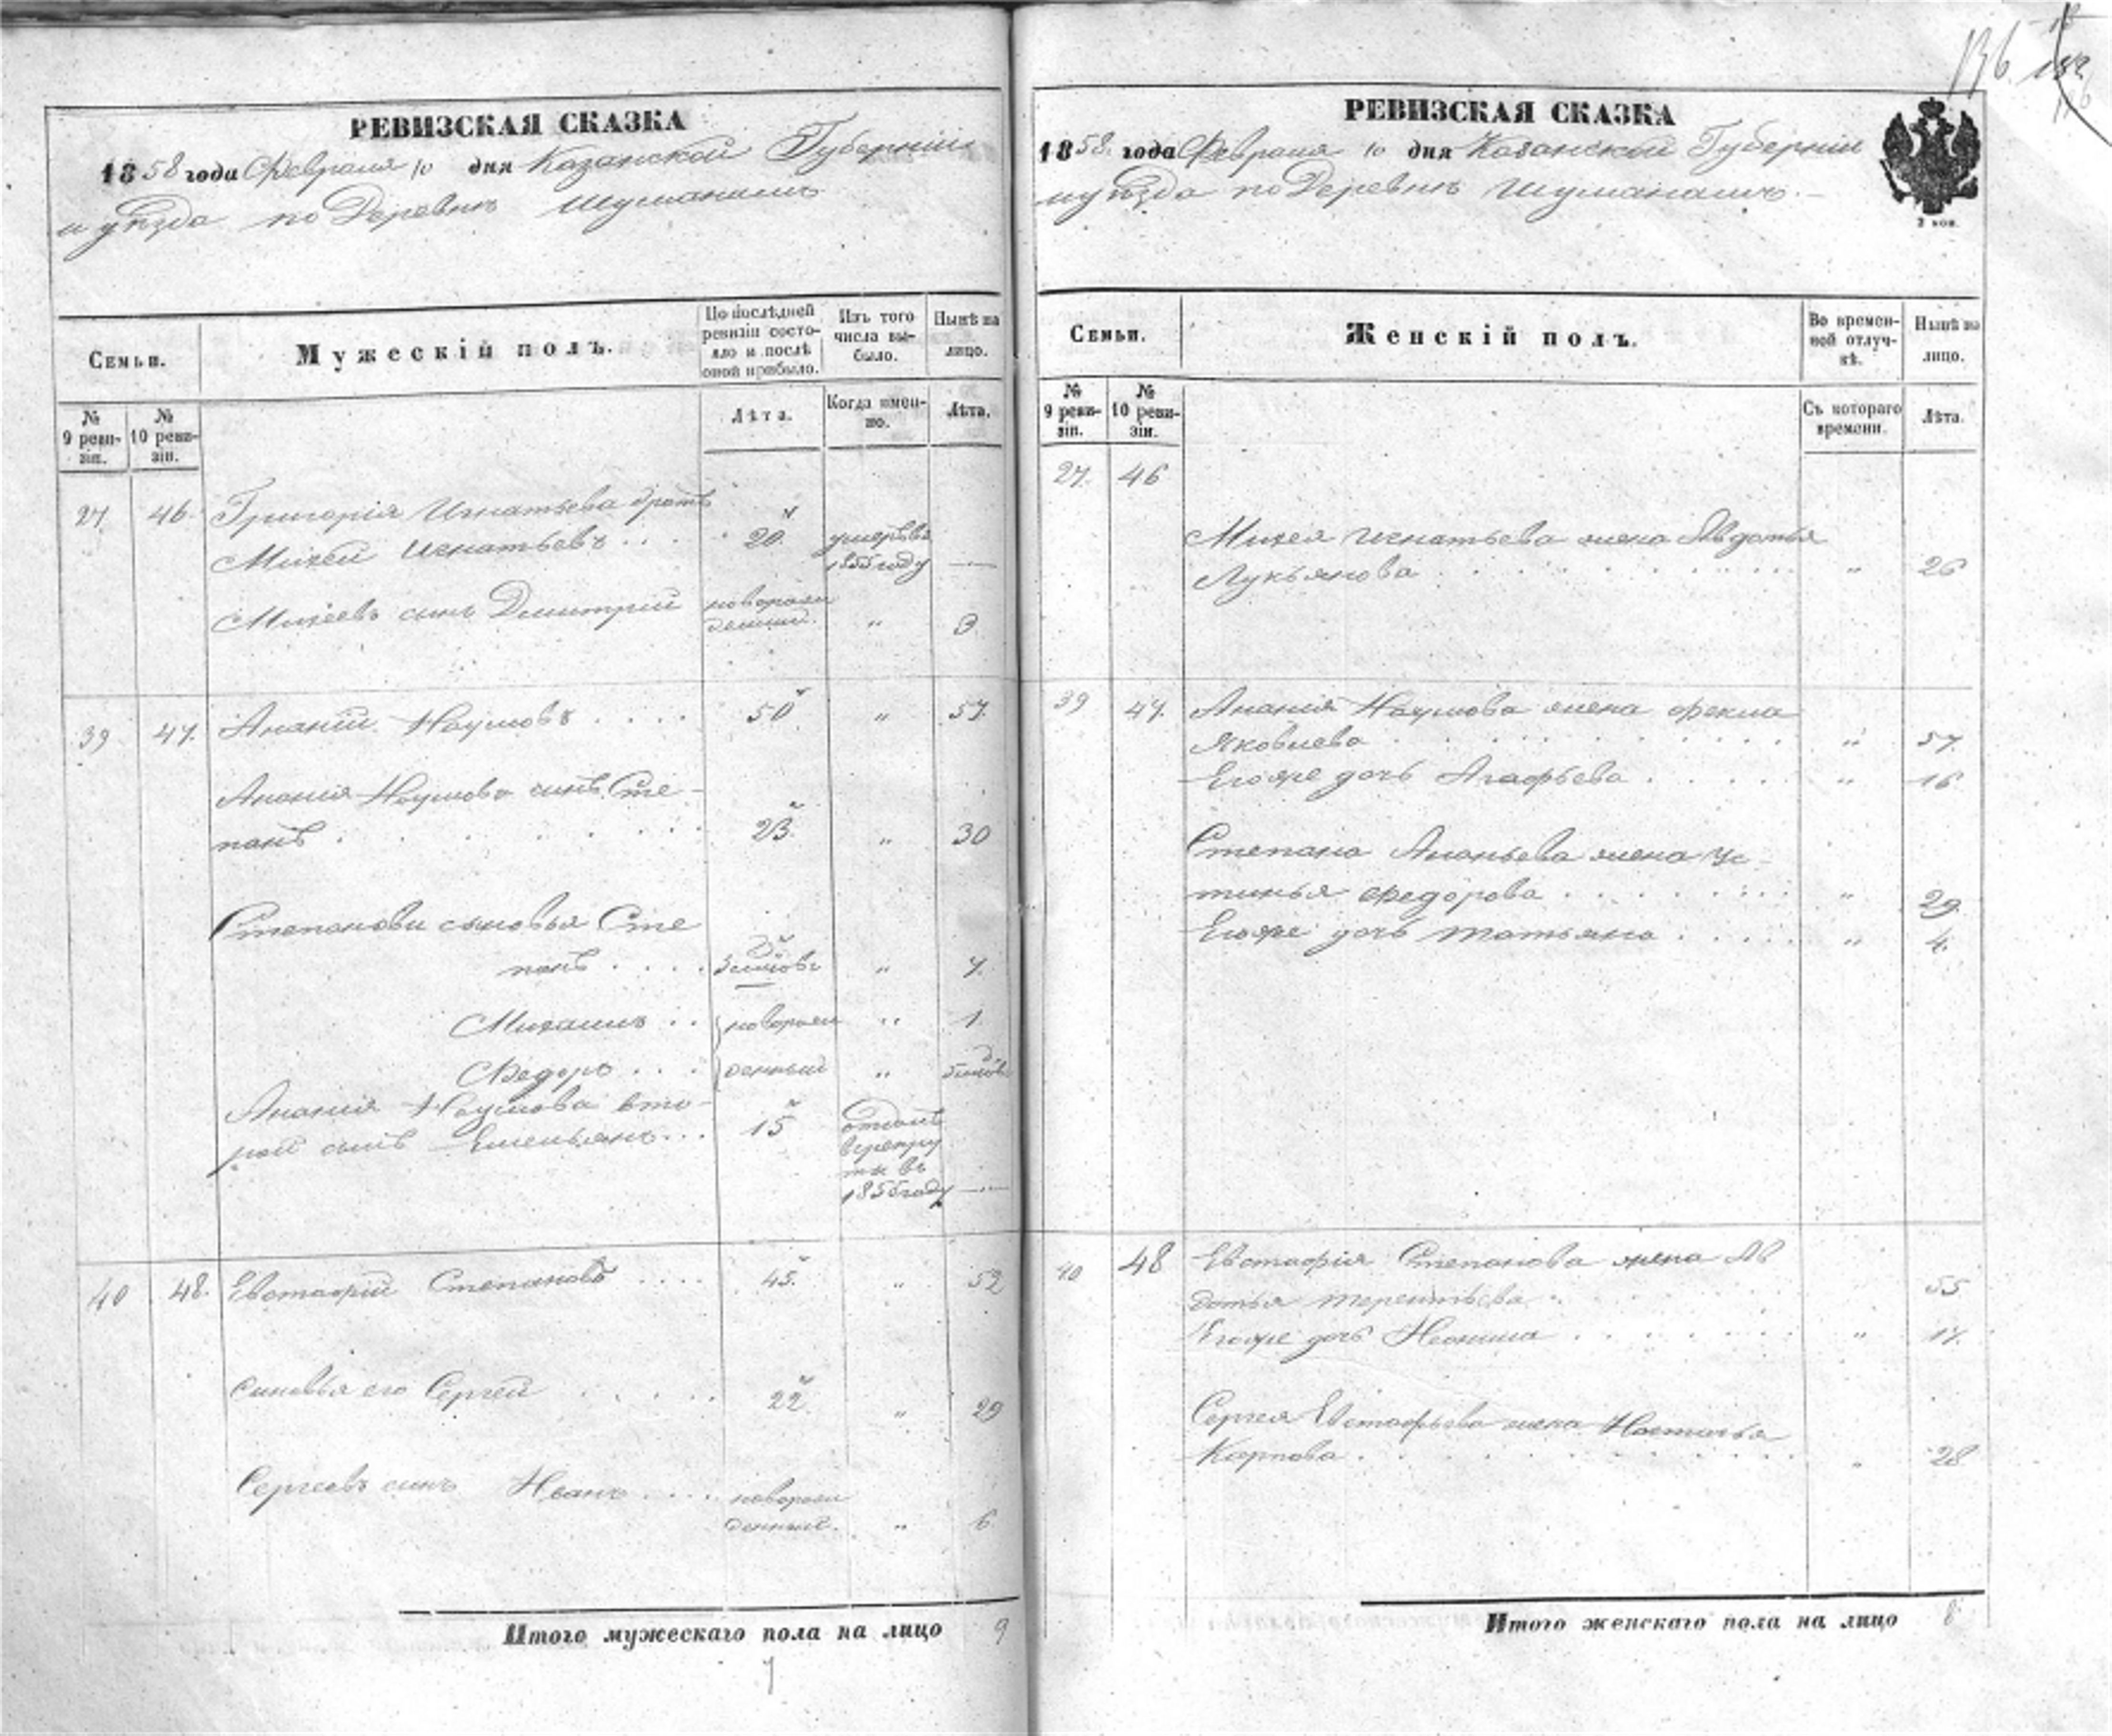 136.
РЕВИЗСКАЯ СКАЗКА
1858 года Февраля 10 дня Казанской Губерніи
и уѣзда по Деревнѣ Шуманамъ
Семьи.
Мужескій полъ.
По послѣдней ревизіи состояло и послѣ оной прибыло.
Изъ того числа выбыло.
Нынѣ на лицо.
№ 9 ревизіи.
№ 10 ревизіи.
Лѣта.
Когда именно.
Лѣта.
27. 46. Григорія Игнатьева братъ
Михей Игнатьевъ . . . 20. умеръ въ
1855 году —
Михеевъ сынъ Дмитрій новорож
денный. " 3
39 47. Ананій Наумовъ . . . . 50 " 57.
Ананія Наумова сынъ Сте-
панъ . . . . . . 23. " 30
Степановы сыновья Сте
панъ . . . . " 7.
Михаилъ . . новорож " 1
Федоръ . . . денный "
Ананія Наумова вто-
рой сынъ Емельянъ . . . 15 отданъ
в рекру
ты въ
1855 году —
40 48. Евстафій Степановъ . . . . 45. " 52
Сыновья его Сергей . . . . . 22. " 29
Сергеевъ сынъ Иванъ . . . . новорож
денный. " 6
Итого мужескаго пола на лицо 9
РЕВИЗСКАЯ СКАЗКА
1858. года Февраля 10 дня Казанской Губерніи
и уѣзда по Деревнѣ Шуманамъ. -
2 коп.
Семьи.
Женскій полъ.
Во временной отлучкѣ.
Нынѣ на лицо.
№ 9 ревизіи.
№ 10 ревизіи.
Съ котораго времени.
Лѣта.
27. 46
Михея Игнатьева жена Авдотья
Лукьянова . . . . . . . " 26
39 47. Ананія Наумова жена Фекла
Яковлева . . . . . . . " 57
Егоже дочь Агафьева . . . . " 16
Степана Ананьева жена Ус-
тинья Федорова . . . . . . " 29.
Егоже дочь Татьяна . . . . . " 4.
40 48 Евстафія Степанова жена Ав
дотья Терентьева . . . . . 55
Егоже дочь Неонила . . . . . . " 17.
Сергея Евстафьева жена Настасья
Карпова . . . . . . . . " 28
Итого женскаго пола на лицо 8